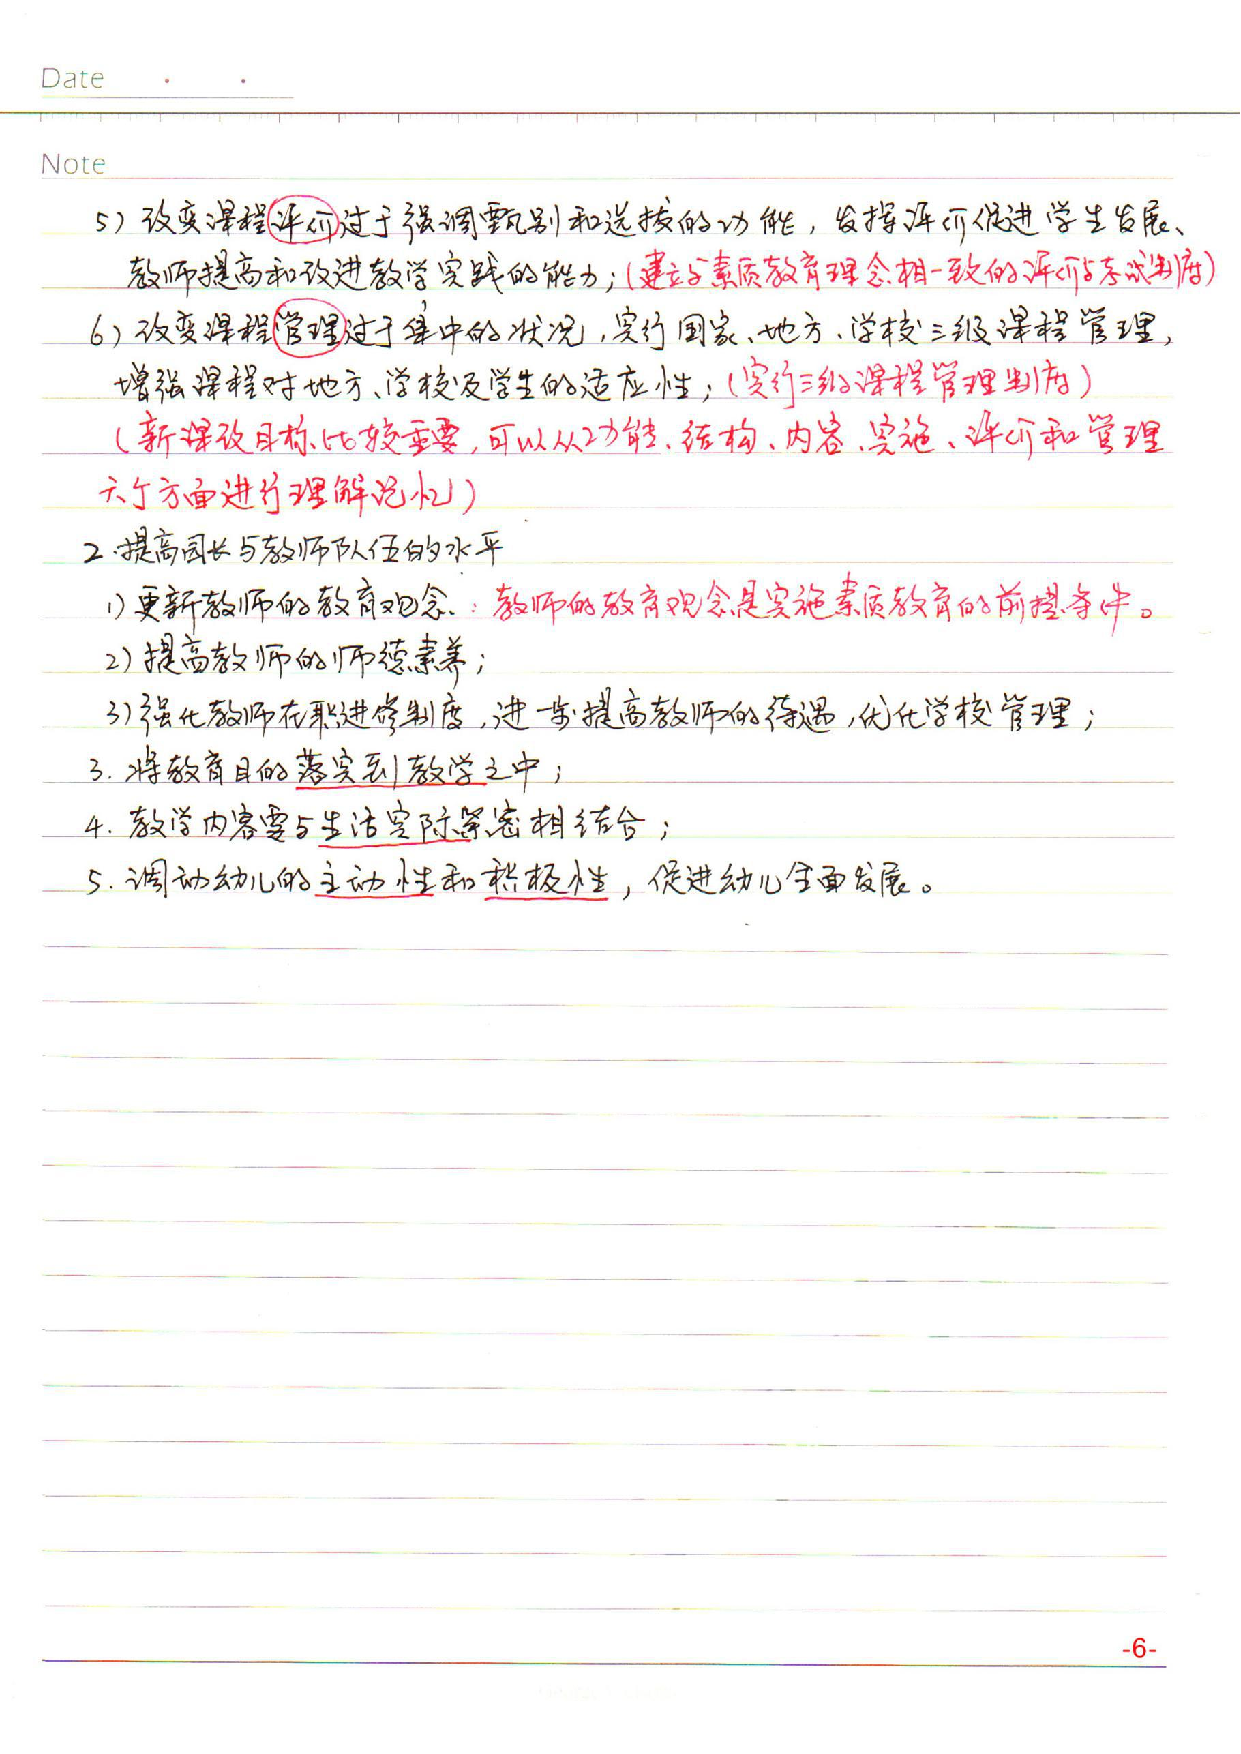 Date
Note
5）改变课程评价过于强调甄别和选拔的功能，发挥评价促进学生发展、
教师提高和改进教学实践的能力；（建立与素质教育理念相一致的评价与考试制度）
6）改变课程管理过于集中的状况，实行国家、地方、学校三级课程管理，
增强课程对地方、学校及学生的适应性；（实行三级课程管理制度）
（新课改目标比较重要，可以从功能、结构、内容、实施、评价和管理
六个方面进行理解记忆）
2.提高园长与教师队伍的水平
1）更新教师的教育观念：教师的教育观念是实施素质教育的前提条件。
2）提高教师的师德素养；
3）强化教师在职进修制度，进一步提高教师的待遇，优化学校管理；
3.将教育目的落实到教学之中；
4.教学内容要与生活实际紧密相结合；
5.调动幼儿的主动性和积极性，促进幼儿全面发展。
-6-